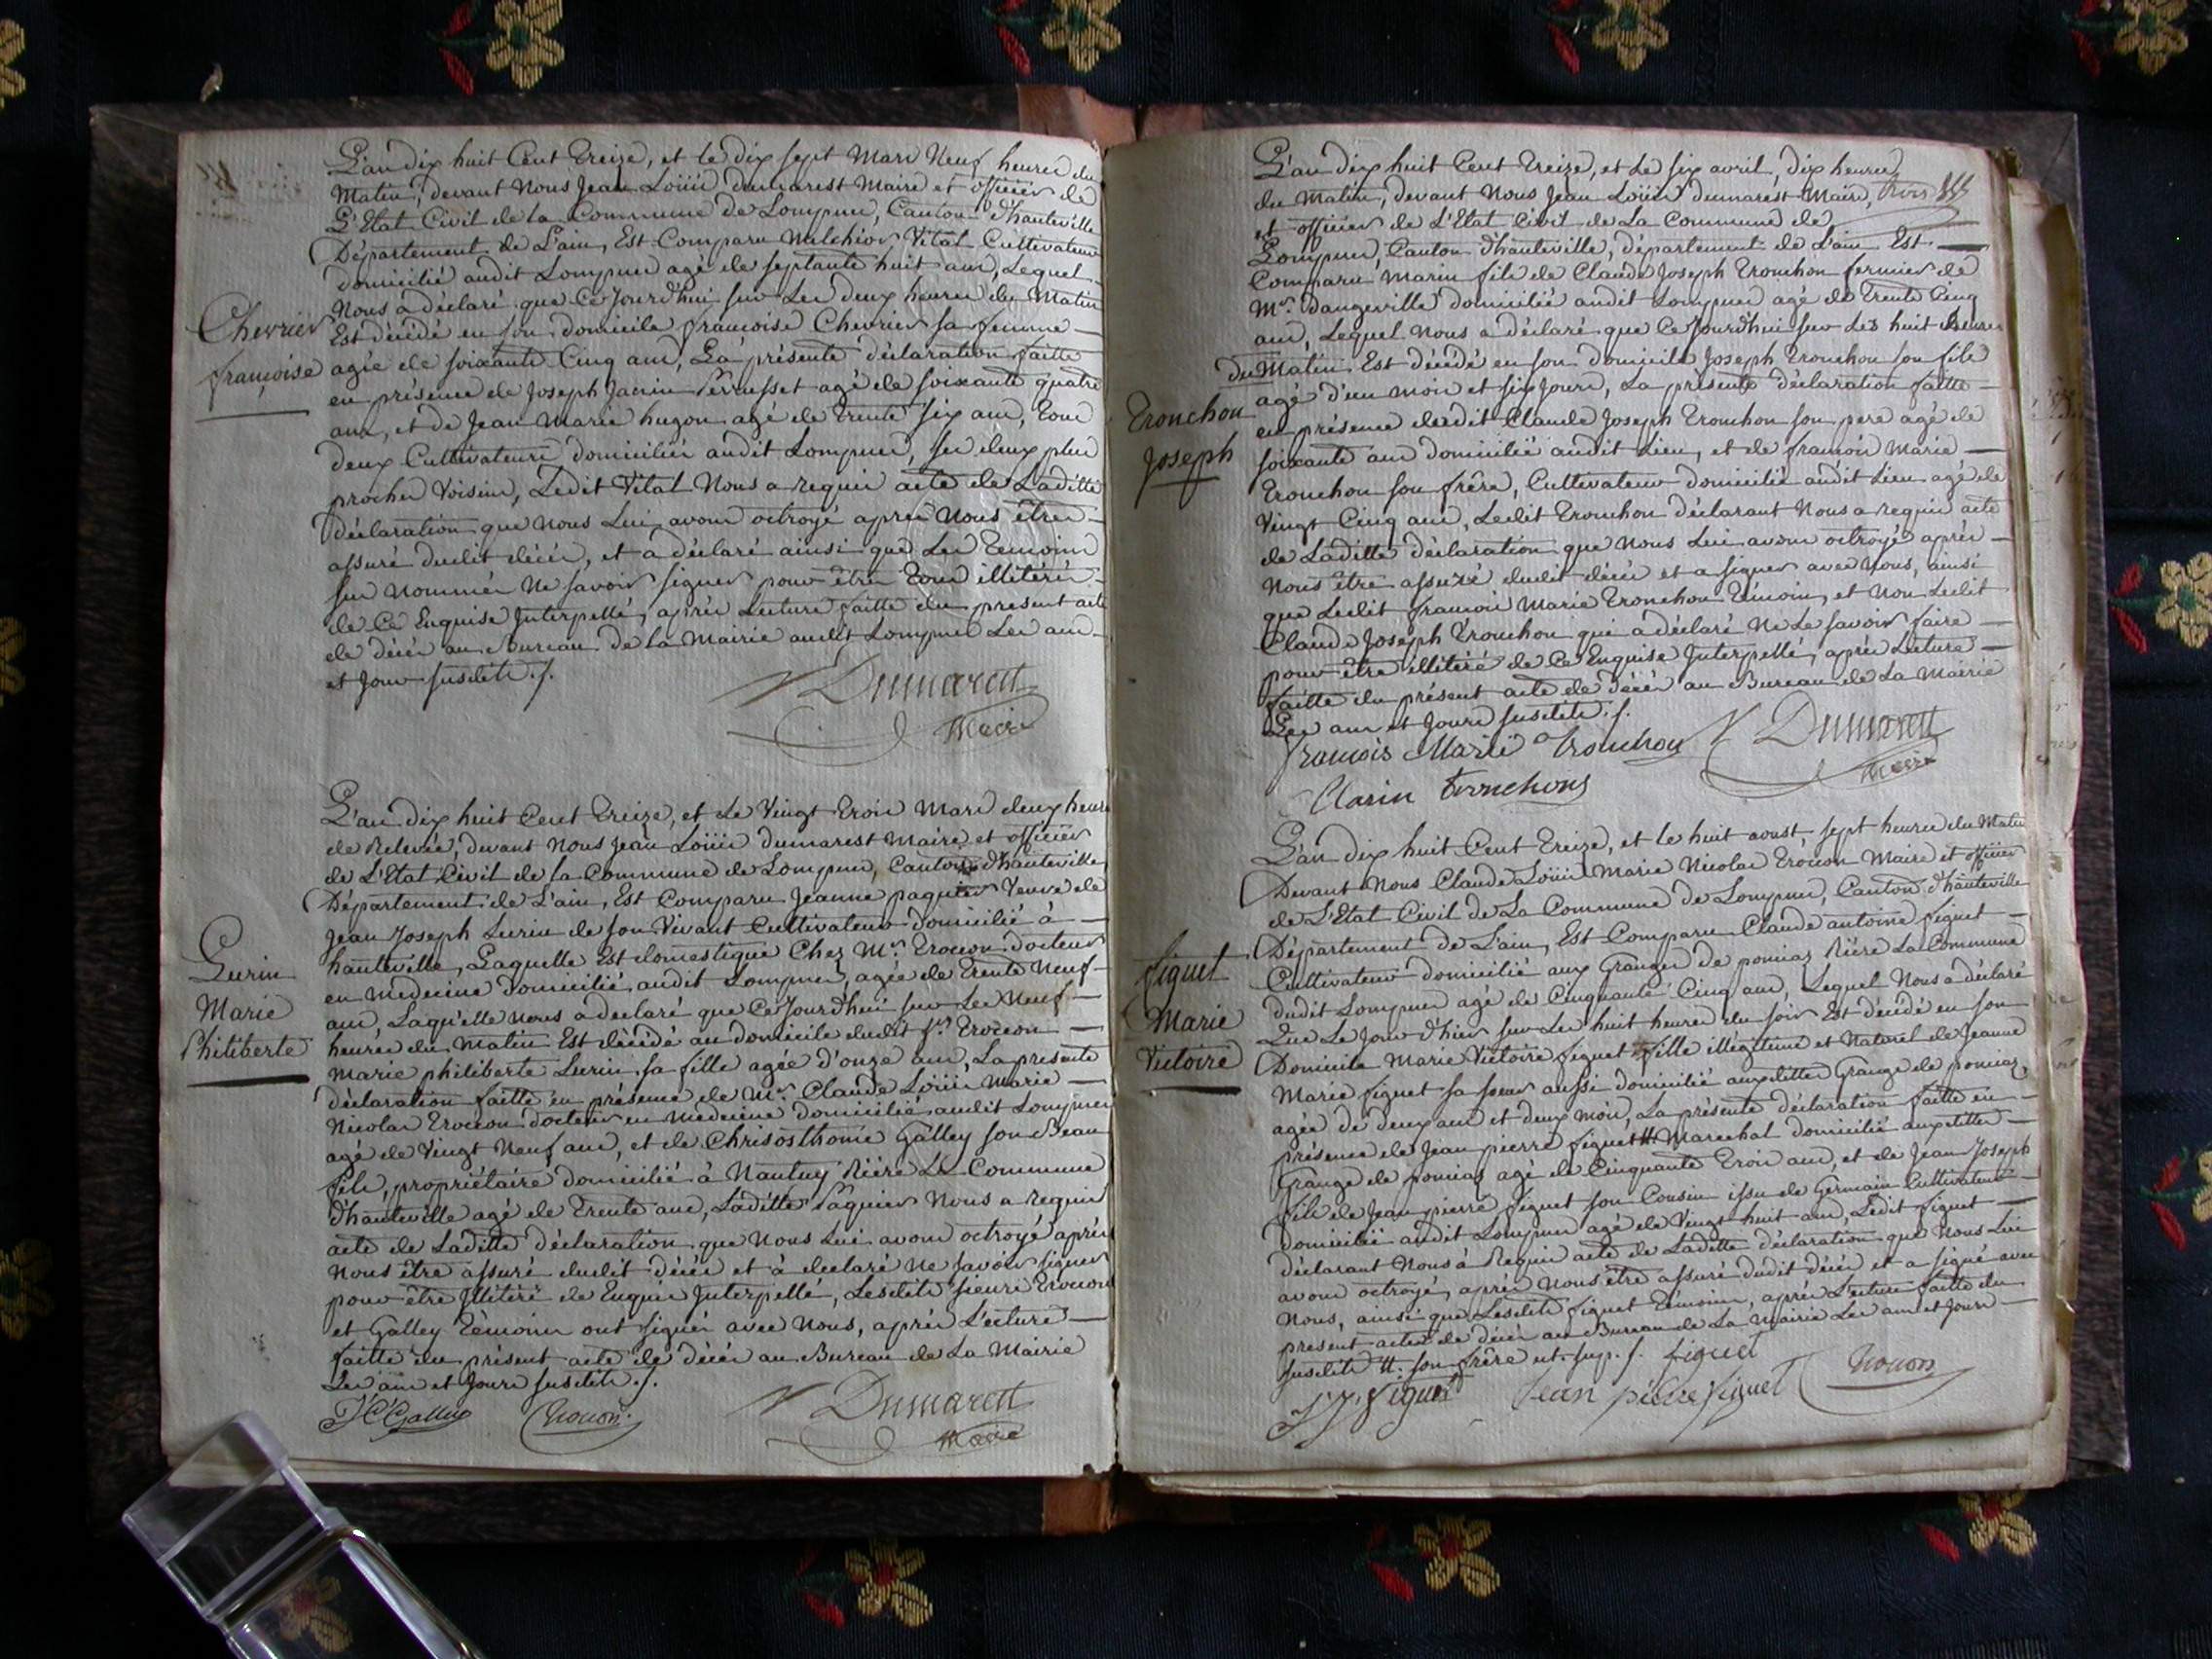 L'an dix huit Cent Treize, et le dix sept Mars Neuf heures du
Matin, devant Nous Jean Loüis dumarest Maire et officier de
L'Etat Civil de la Commune de Lompnes, Canton d'hauteville
Département de L'ain, Est Comparu Melchior Vital Cultivateur
domicilié audit Lompnes agé de septante huit ans, Lequel
Nous a déclaré que Ce Jourd'hui sur Les deux heures du Matin
Est décédé en son domicile françoise Chevrier sa femme
agée de soixante Cinq ans, La présente déclaration faitte
en présence de Joseph Janin Perrusset agé de soixante quatre
ans, et de Jean Marie hugon agé de Trente six ans, Tous
deux Cultivateurs domiciliés audit Lompnes, ses deux plus
proches Voisins, Ledit Vital Nous a requis acte de Laditte
déclaration que Nous Lui avons octroyé après Nous être
assuré dudit décès, et a déclaré ainsi que Les Témoins
sus nommés Ne savoir signer pour être Tous illitérés
de Ce Enquis Interpellé, après Lecture faitte du present acte
de décès au Bureau de la Mairie audit Lompnes Les ans
et Jour susdits ./.
Dumarest
Maire
Chevrier
françoise
L'an dix huit Cent Treize, et Le Vingt Trois Mars deux heures
de Relevée, devant Nous Jean Loüis dumarest Maire et officier
de L'Etat Civil de la Commune de Lompnes, Canton d'hauteville
Département de L'ain, Est Comparu Jeanne paquier Veuve de
Jean Joseph Lurin de son Vivant Cultivateur domicilié à
hauteville, Laquelle Est domestique Chez Mr. Trocon docteur
en Medecine domicilié audit Lompnes, agée de Trente Neuf
ans, Laquelle nous a déclaré que Ce Jourd'hui sur Les Neuf
heures du Matin Est décédé au domicile dudit Sr. Trocon
Marie philiberte Lurin sa fille agée d'onze ans, La presente
déclaration faitte en présence de Mr. Claude Loüis Marie
Nicolas Trocon docteur en Medecine domicilié audit Lompnes
agé de Vingt Neuf ans, et de Chrisosthome Galley son Beau
fils, propriétaire domicilié à Nantuy Riére La Commune
d'hauteville agé de Trente ans, Laditte Paquier Nous a requis
acte de Laditte déclaration que Nous Lui avons octroyé après
Nous être assuré dudit décès et à déclaré Ne savoir signer
pour être Illitéré de Enquis Interpellé, Lesdits sieurs Trocon
et Galley Témoins ont signés avec Nous, après Lecture
faitte du présent acte de décès au Bureau de La Mairie
Les ans et Jours susdits ./.
Galley Trocon Dumarest
Maire
Lurin
Marie
Philiberte
L'an dix huit Cent Treize, et Le six avril, dix heures
du Matin, devant Nous Jean Loüis dumarest Maire,
et officier de L'Etat Civil de La Commune de
Lompnes, Canton d'hauteville, département de L'ain Est
Comparu Marin fils de Claude Joseph Tronchon fermier de
Mr. Dangeville domicilié audit Lompnes agé de Trente Cinq
ans, Lequel Nous a déclaré que Ce Jourd'hui sur Les huit heures
du Matin Est décédé en son domicile Joseph Tronchon son fils
agé d'un mois et six Jours, La présente déclaration faitte
en présence dudit Claude Joseph Tronchon son pere agé de
soixante ans domicilié audit Lieu, et de françois Marie
Tronchon son frêre, Cultivateur domicilié audit Lieu agé de
Vingt Cinq ans, Ledit Tronchon déclarant Nous a requis acte
de Laditte déclaration que Nous Lui avons octroyé après
Nous être assuré dudit décès et a signer avec Nous, ainsi
que Ledit françois Marie Tronchon Témoin, et Non Ledit
Claude Joseph Tronchon qui a déclaré Ne Le savoir faire
pour être illitéré de Ce Enquis Interpellé, après Lecture
faitte du présent acte de décès au Bureau de La Mairie
Les ans et Jours susdits ./.
françois Marie Tronchon Dumarest
Maire
Marin Tronchons
Tronchon
Joseph
L'an dix huit Cent Treize, et le huit aoust sept heures du Matin
Devant Nous Claude Loüis Marie Nicolas Trocon Maire et officier
de L'Etat Civil de La Commune de Lompnes, Canton d'hauteville
Département de L'ain, Est Comparu Claude antoine figuet
Cultivateur domicilié aux Granges de pomiaz Riére La Commune
dudit Lompnes agé de Cinquante Cinq ans, Lequel Nous a déclaré
Que Le Jour d'hier sur Les huit heures du soir Est décédé en son
Domicile Marie Victoire figuet fille illégitime et Naturel de Jeanne
Marie figuet sa soeur aussi domicilié auxdittes Granges de pomiaz,
agée de deux ans et deux mois, La présente déclaration faitte en
présence de Jean pierre figuet #. Marechal domicilié auxdittes
Granges de pomiaz agé de Cinquante Trois ans, et de Jean Joseph
fils de Jean pierre figuet son Cousin issu de Germain Cultivateur
domicilié audit Lompnes agé de Vingt huit ans, Ledit figuet
déclarant Nous à Requis acte de Laditte déclaration que Nous Lui
avons octroyé, après Nous être assuré dudit décès et a signé avec
Nous, ainsi que Lesdits figuet Témoins, après Lecture faitte du
present acte de décès au Bureau de La Mairie Les ans et Jours
susdits #. son frêre ut. sup. ./. figuet
J J figuet Jean pierre figuet Trocon
figuet
Marie
Victoire